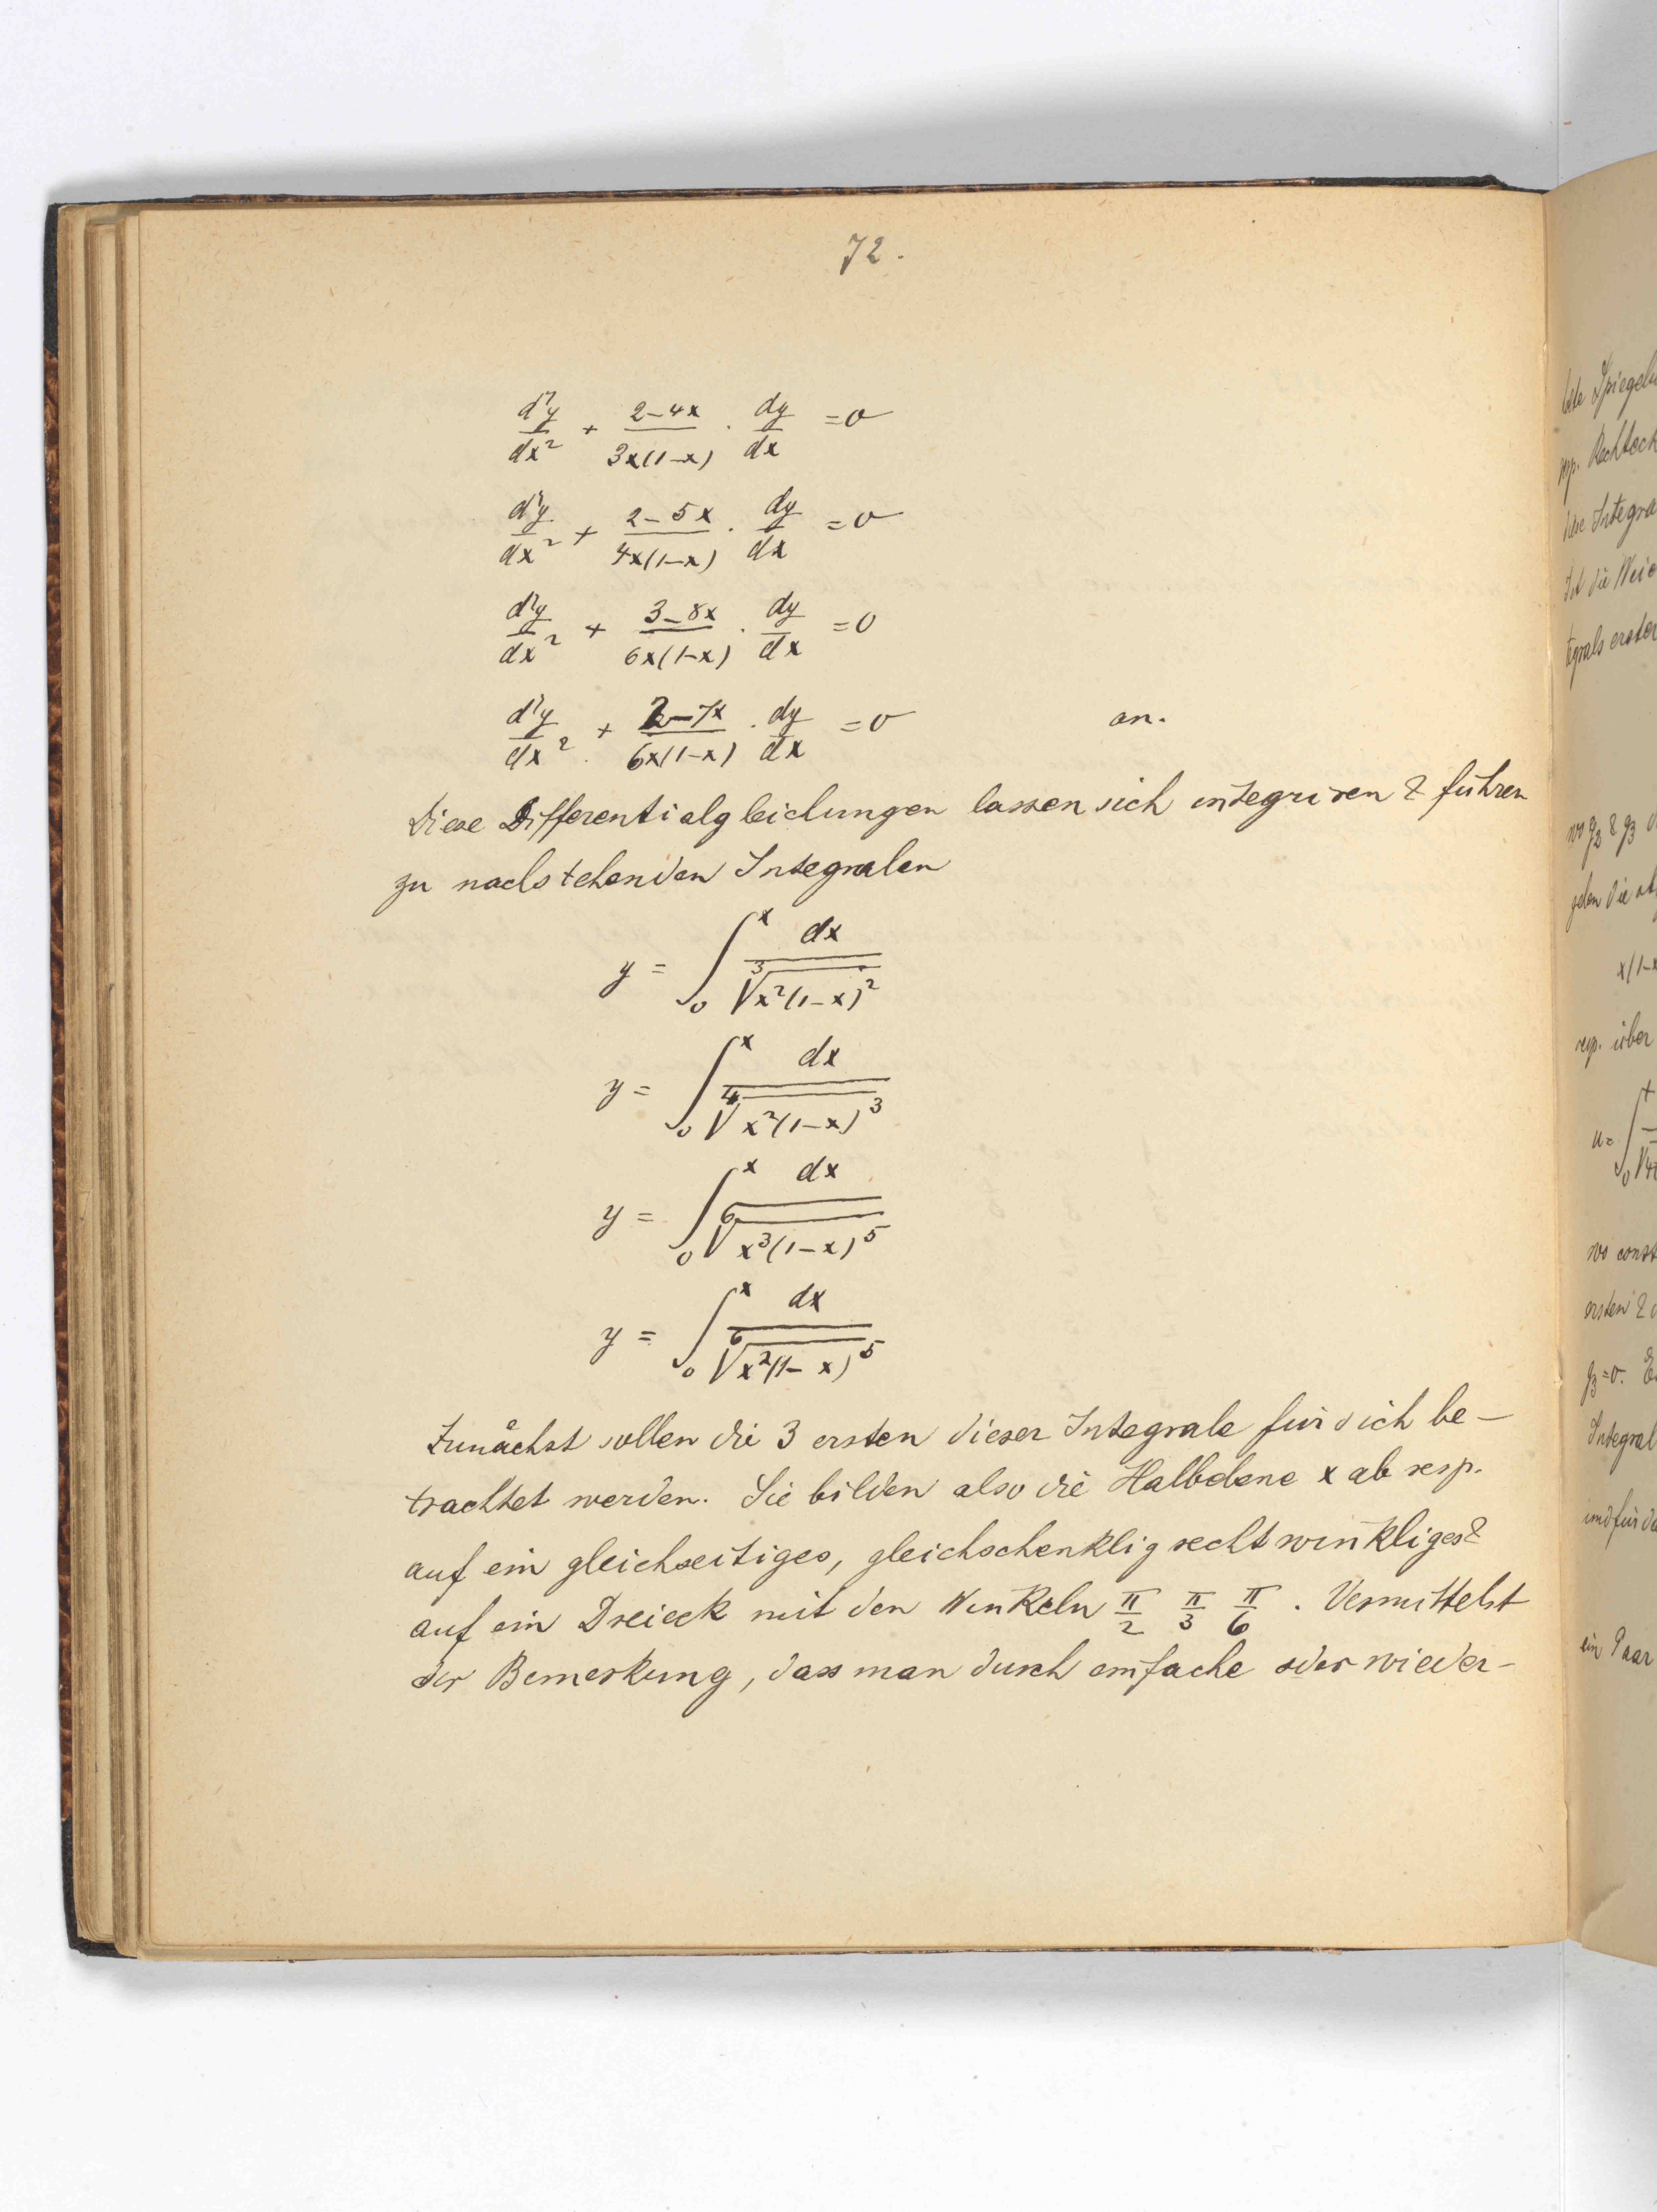 72.
d²y/dx² + 2-4x/3x(1-x) . dy/dx = 0
d²y/dx² + 2-5x/4x(1-x) . dy/dx = 0
d²y/dx² + 3-8x/6x(1-x) . dy/dx = 0
d²y/dx² + 2-7x/6x(1-x) . dy/dx = 0 an.
Diese Differentialgleichungen lassen sich integriren & führen
zu nachstehenden Integralen
y = ∫₀ˣ dx/∛(x²(1-x)²)
y = ∫₀ˣ dx/∜(x²(1-x)³)
y = ∫₀ˣ dx/⁶√(x³(1-x)⁵)
y = ∫₀ˣ dx/⁶√(x²(1-x)⁵)
Zunächst sollen die 3 ersten dieser Integrale für sich be-
trachtet werden. Sie bilden also die Halbebene x ab resp.
auf ein gleichseitiges, gleichschenklig rechtwinkliges &
auf ein Dreieck mit den Winkeln π/2 π/3 π/6 . Vermittelst
der Bemerkung, dass man durch einfache oder wieder-
resp. Rechteck
g₂ & g₃
x(1-x
resp. über
u = ∫₀
wo const
ersten &
g₃ = 0.
Integral
und für
ein Paar